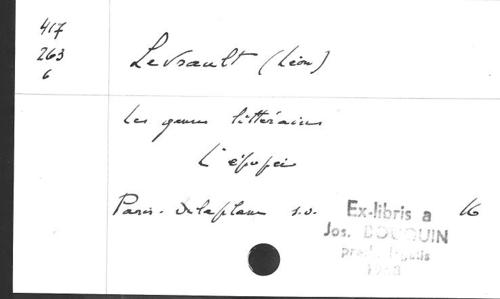 417
263
6
Levrault (Léon)
Les genres littéraires
L'épopée
Paris - Delaplane s.d. 16
Ex-libris a
Jos. BOUQUIN